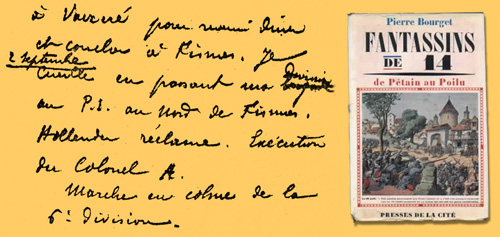 à Vauxcéré pour manger dîner
et coucher à Fismes. Je
2 septembre
cueille en passant ma Division
au P.E. au Nord de Fismes.
Hollender réclame. Exécution
du Colonel A.
Marche en colonne de la
6e division.
Pierre Bourget
FANTASSINS
DE 14
de Pétain au Poilu
PRESSES DE LA CITÉ